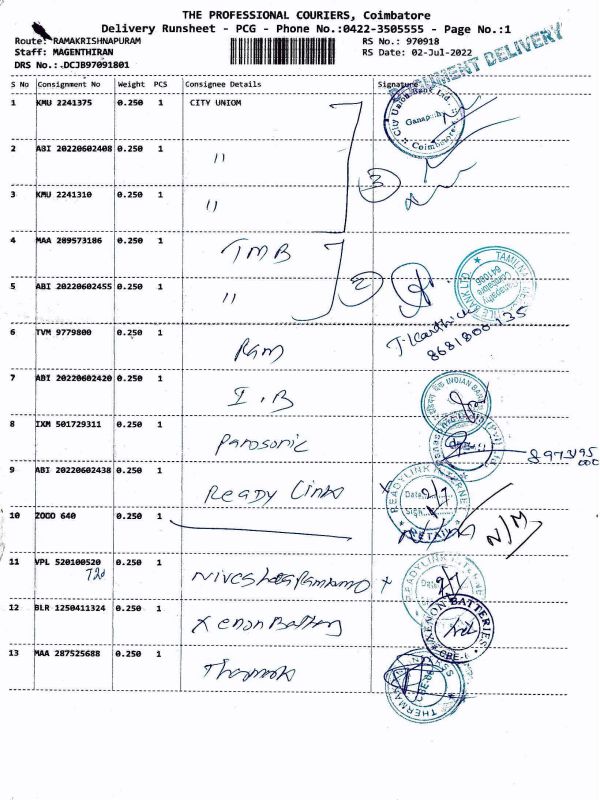 THE PROFESSIONAL COURIERS, Coimbatore
Delivery Runsheet - PCG - Phone No.:0422-3505555 - Page No.:1
Route: RAMAKRISHNAPURAM
Staff: MAGENTHIRAN
DRS No.:.DCJB97091801
RS No.: 970918
RS Date: 02-Jul-2022
DOCUMENT DELIVERY
S No Consignment No Weight PCS Consignee Details Signature
1 KMU 2241375 0.250 1 CITY UNIOM
City Union Bank Ltd.
Coimbatore
2 ABI 20220602408 0.250 1 "
3 KMU 2241310 0.250 1 "
3
4 MAA 289573186 0.250 1 TMB
5 ABI 20220602455 0.250 1 "
2
J. Karthick
8681800135
6 TVM 9779800 0.250 1 Ram
7 ABI 20220602420 0.250 1 I.B
INDIAN BANK
8 IXM 501729311 0.250 1 Panosonic
9 ABI 20220602438 0.250 1 Ready Links
READYLINK INTERNET
Date 2/7
Sign
10 ZOCO 640 0.250 1
N/M
11 VPL 520100520 0.250 1
T20
READYLINK INTERNE
Date 2/7
12 BLR 1250411324 0.250 1 Xenon Battery
XENON BATTERIES
CBE-
13 MAA 287525688 0.250 1